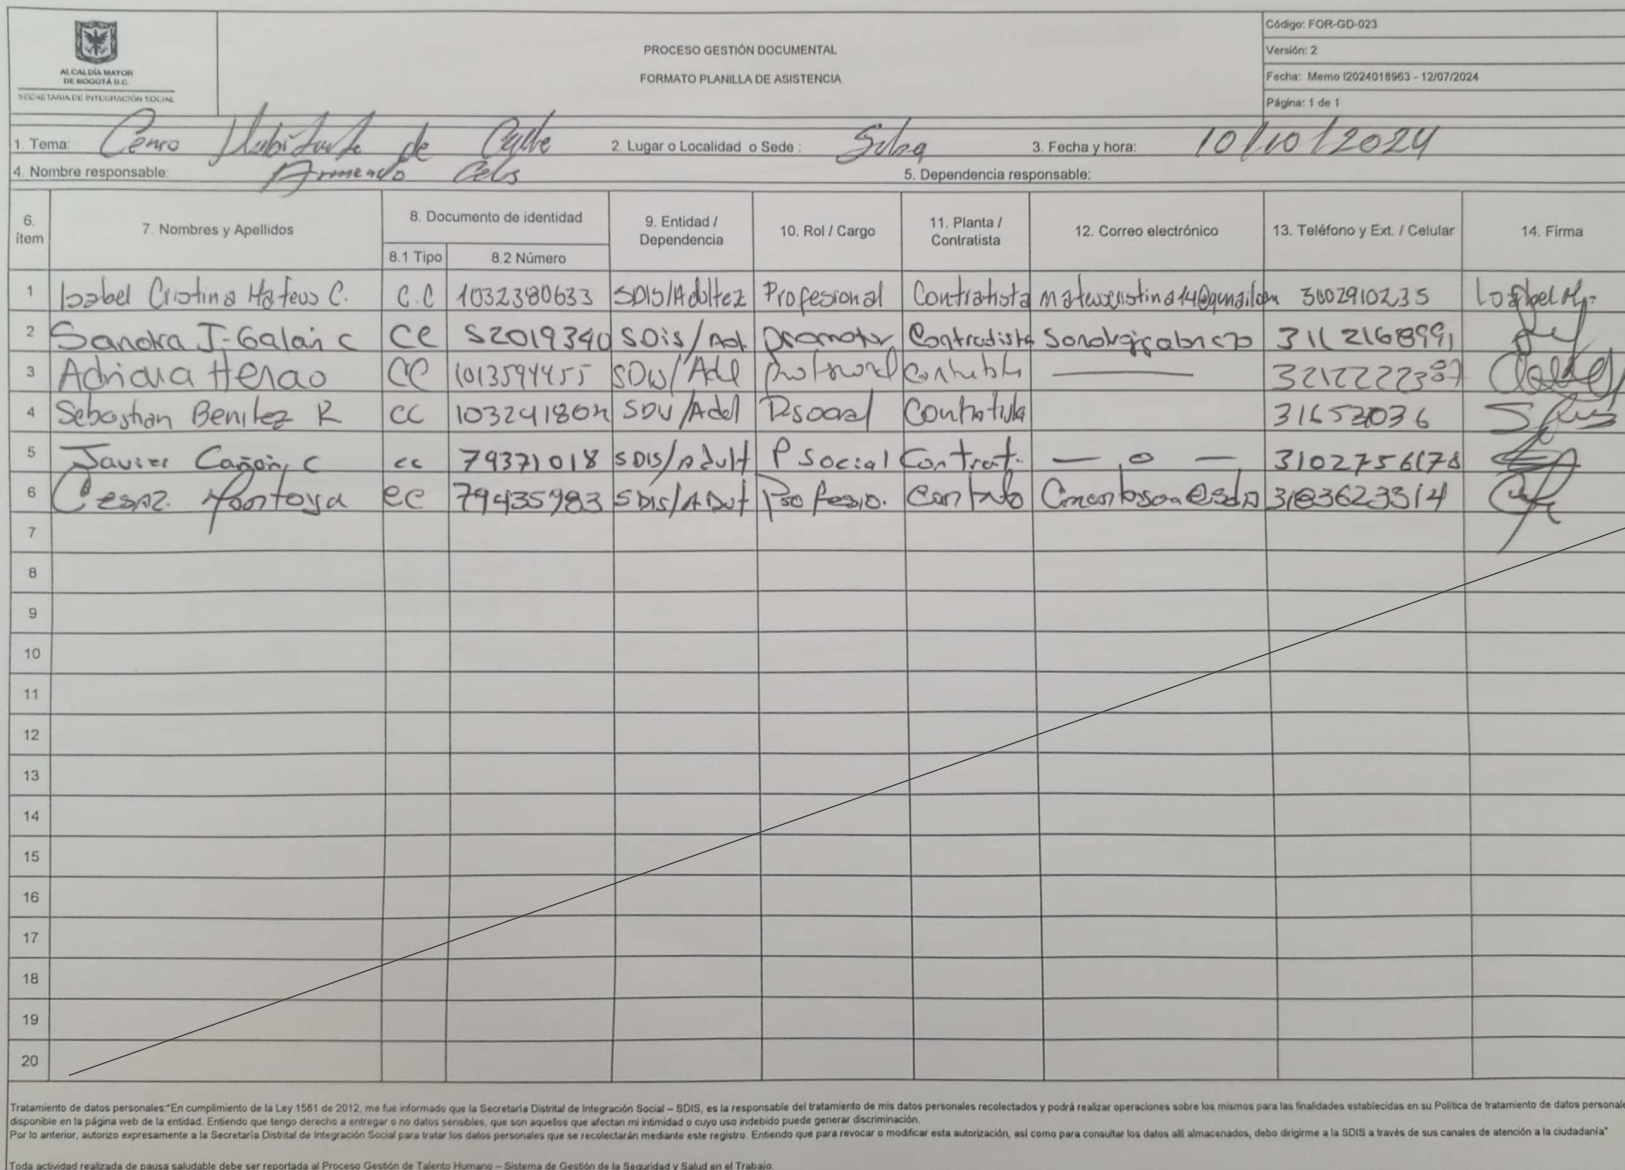 ALCALDÍA MAYOR
DE BOGOTÁ D.C.
SECRETARÍA DE INTEGRACIÓN SOCIAL
PROCESO GESTIÓN DOCUMENTAL
FORMATO PLANILLA DE ASISTENCIA
Código: FOR-GD-023
Versión: 2
Fecha: Memo I2024018963 - 12/07/2024
Página: 1 de 1
1. Tema: Censo Habitante de Calle 2. Lugar o Localidad o Sede: 3. Fecha y hora: 10/10/2024
4. Nombre responsable: Armando 5. Dependencia responsable:
6. ítem 7. Nombres y Apellidos 8. Documento de identidad 9. Entidad / Dependencia 10. Rol / Cargo 11. Planta / Contratista 12. Correo electrónico 13. Teléfono y Ext. / Celular 14. Firma
8.1 Tipo 8.2 Número
1 Isabel Cristina Mateus C. C.C 1032380633 SDIS/Adultez Profesional Contratista 3002910235
2 Sandra J. Galan C CC 52019340 SDis/Ad. promotor Contradista 3112168991
3 Adriana Henao CC 1013594455 Contratista
4 Sebastian Benitez R CC Contratista 31652036
5 Javier Cañon C cc 79371018 SDIS/Adult P Social Contrat. — o — 3102756178
6 Montoya CC 79435983 SDIS/ADUT Profesio. 3183623314
7
8
9
10
11
12
13
14
15
16
17
18
19
20
Tratamiento de datos personales:"En cumplimiento de la Ley 1581 de 2012, me fue informado que la Secretaría Distrital de Integración Social – SDIS, es la responsable del tratamiento de mis datos personales recolectados y podrá realizar operaciones sobre los mismos para las finalidades establecidas en su Política de tratamiento de datos personale
disponible en la página web de la entidad. Entiendo que tengo derecho a entregar o no datos sensibles, que son aquellos que afectan mi intimidad o cuyo uso indebido puede generar discriminación.
Por lo anterior, autorizo expresamente a la Secretaría Distrital de Integración Social para tratar los datos personales que se recolectarán mediante este registro. Entiendo que para revocar o modificar esta autorización, así como para consultar los datos allí almacenados, debo dirigirme a la SDIS a través de sus canales de atención a la ciudadanía"
Toda actividad realizada de pausa saludable debe ser reportada al Proceso Gestión de Talento Humano – Sistema de Gestión de la Seguridad y Salud en el Trabajo.